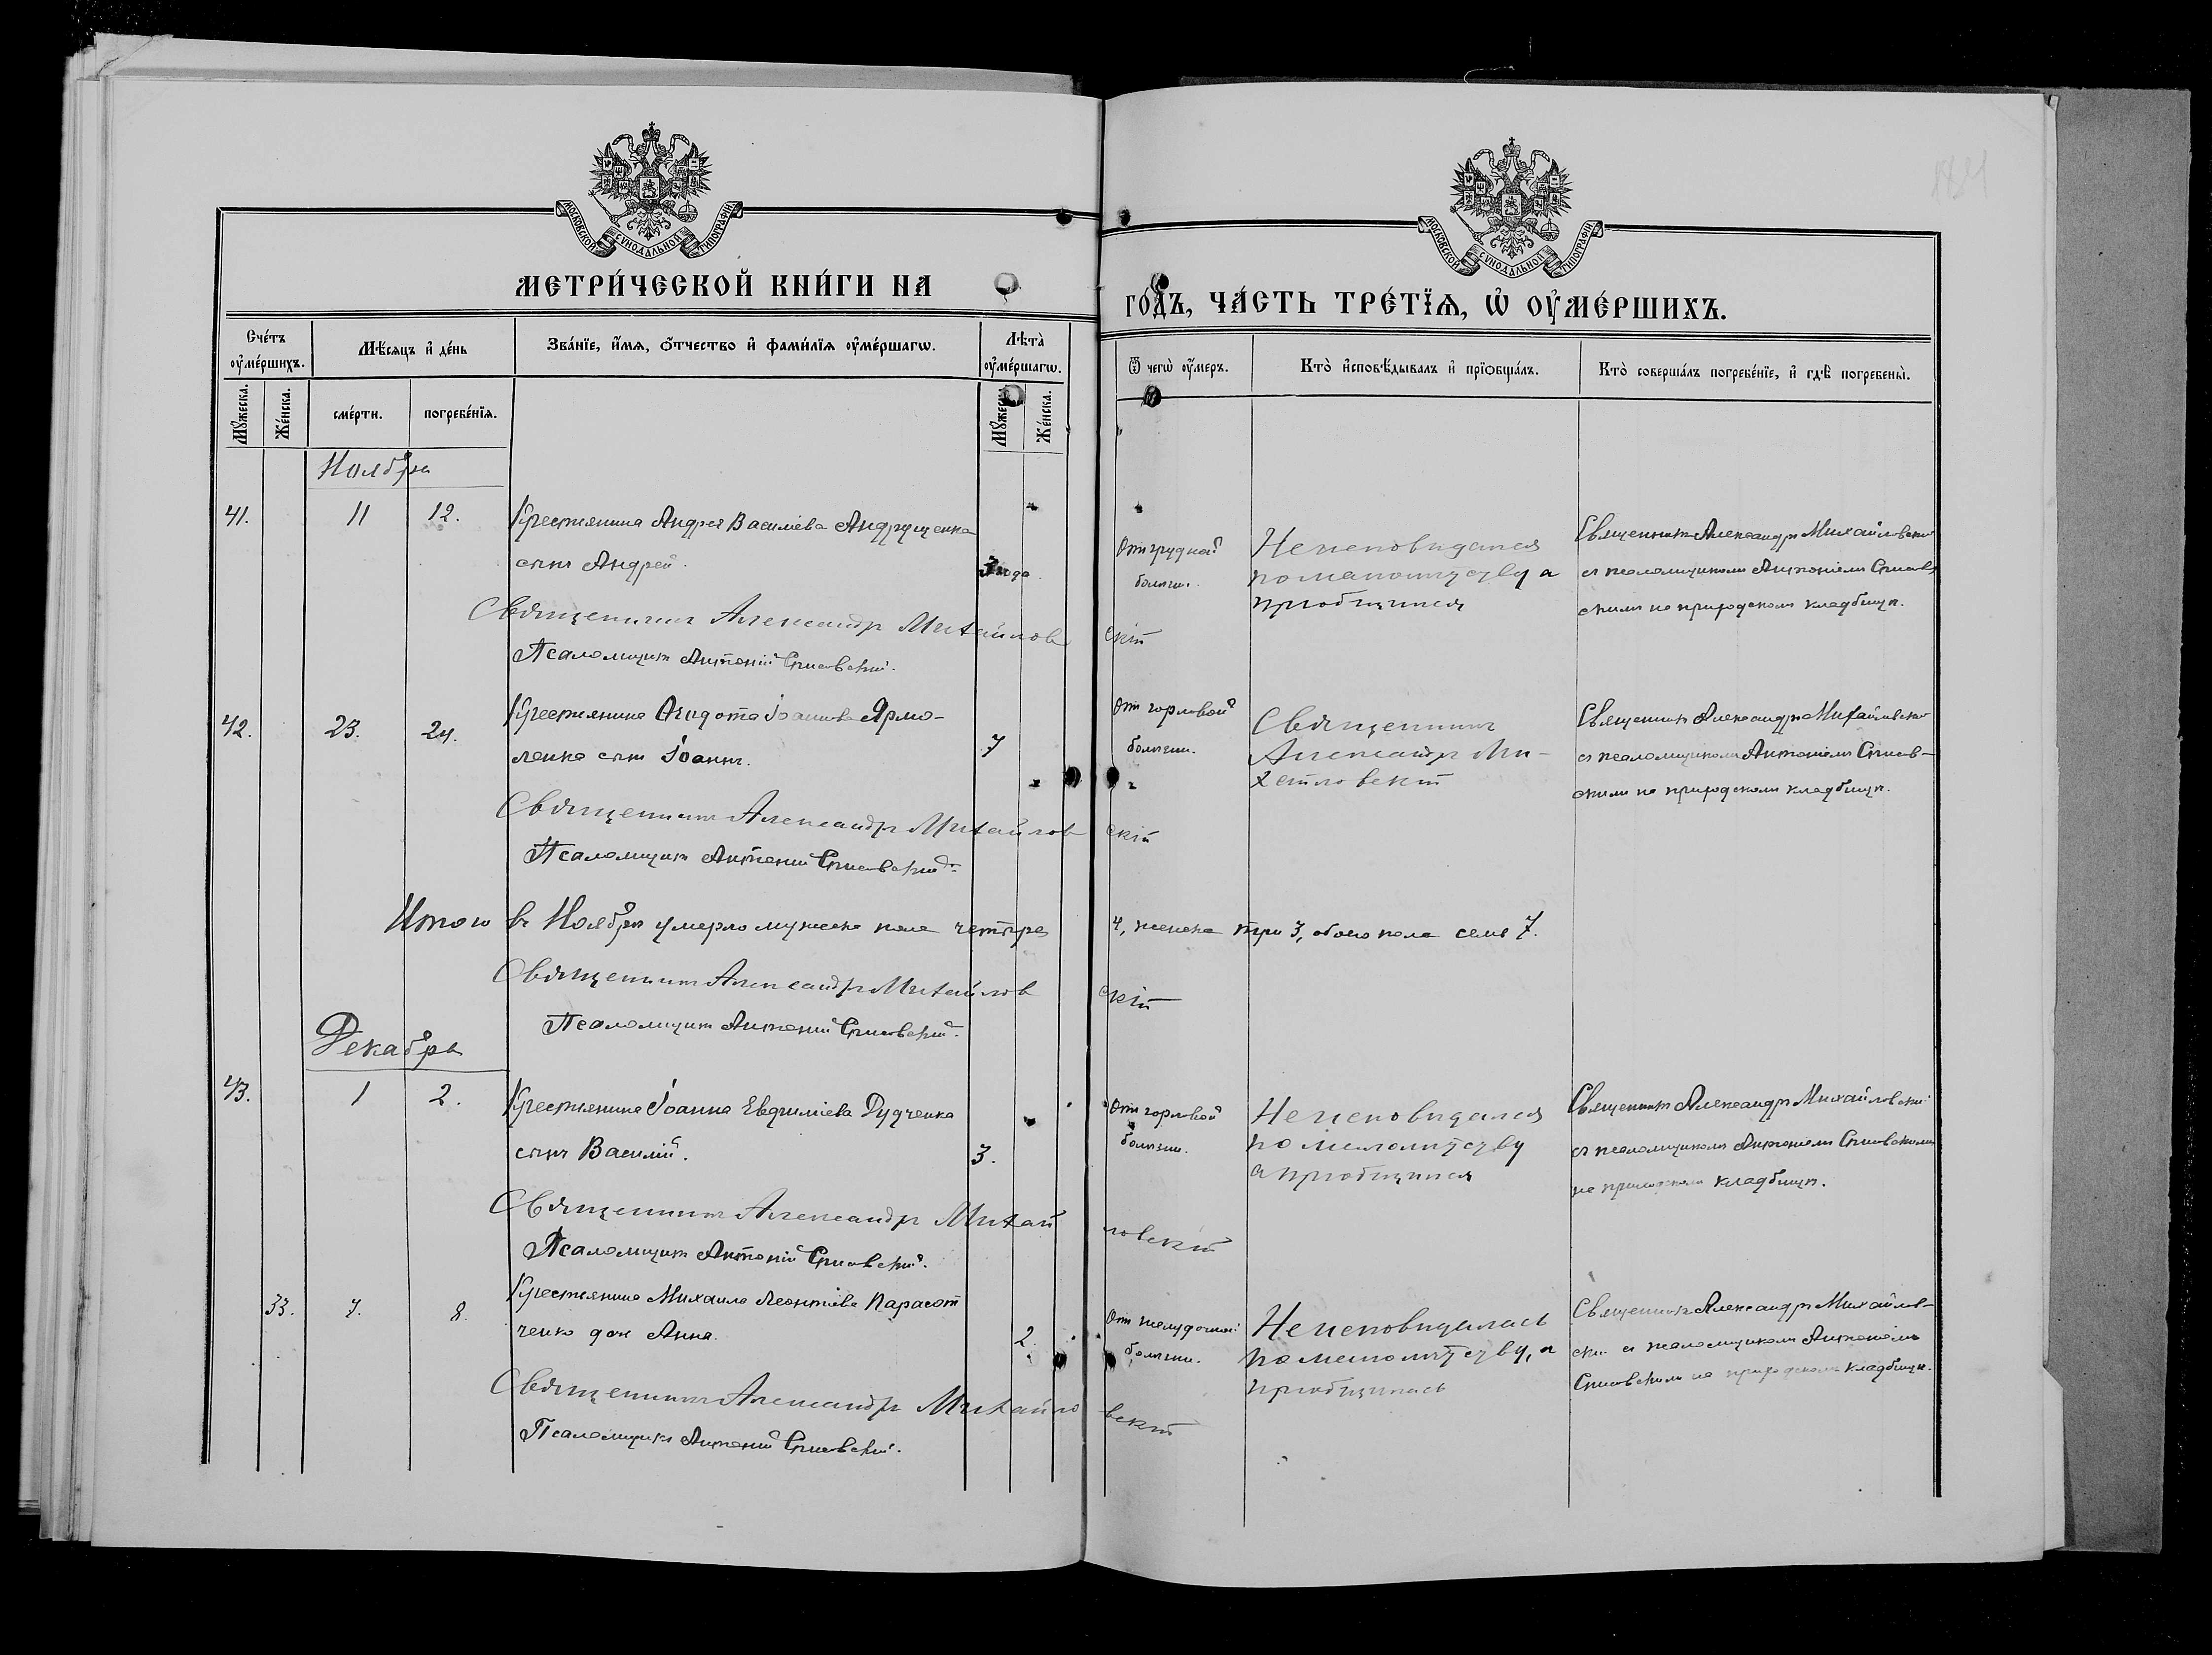 МОСКОВСКОЙ СУНОДАЛЬНОЙ ТИПОГРАФІИ
МЕТРИ́ЧЕСКОЙ КНИ́ГИ НА
Сче́тъ оу҆ме́ршихъ.
Мѣ́сяцъ и҆ де́нь
Зва́нїе, и҆́мѧ, ѻ҆́тчество и҆ фами́лїѧ оу҆ме́ршагѡ.
Лѣ́та оу҆ме́ршагѡ.
Мꙋ́жеска.
Же́нска.
сме́рти.
погребе́нїѧ.
Мꙋ́жеска.
Же́нска.
Ноябрь
41. 11 12. Крестьянина Андрея Василіева Андрущенка
сынъ Андрей. 3 года.
Священникъ Александръ Михайлов
Псаломщикъ Антоній
42. 23. 24. Крестьянина Ѳеодота Іоаннова Ярмо-
ленка сынъ Іоаннъ. 7
Священникъ Александръ Михайлов
Псаломщикъ Антоній
Итого въ Ноябрѣ умерло мужеска пола четыре
Священникъ Александръ Михайлов
Псаломщикъ Антоній
Декабрь
43. 1 2. Крестьянина Іоанна Евфиміева Дудченка
сынъ Василій. 3.
Священникъ Александръ Михай
Псаломщикъ Антоній
33. 7. 8. Крестьянина Михаила Леонтіева
ченко дочь Анна. 2.
Священникъ Александръ Михайло
Псаломщикъ Антоній
МОСКОВСКОЙ СУНОДАЛЬНОЙ ТИПОГРАФІИ
ГО́ДЪ, ЧА́СТЬ ТРЕ́ТЇѦ, Ѡ҆ ОУ҆МЕ́РШИХЪ.
Ѿ чегѡ̀ оу҆́меръ.
Кто̀ и҆сповѣ́дывалъ и҆ прїѡбща́лъ.
Кто̀ соверша́лъ погребе́нїе, и҆ гдѣ̀ погребены̀.
Отъ грудной
болѣзни.
Неисповѣдался
по малолѣтству а
пріобщился
Священникъ Александръ Михайловскій
съ псаломщикомъ Антоніемъ
скимъ на приходскомъ кладбищѣ.
скій
Отъ горловой
болѣзни.
Священникъ
Александръ Ми-
хайловскій
Священникъ Александръ Михайловскій
съ псаломщикомъ Антоніемъ
скимъ на приходскомъ кладбищѣ.
скій
4, женска три 3, обоего пола семь 7.
скій
Отъ горловой
болѣзни.
Неисповѣдался
по малолѣтству
а пріобщился
Священникъ Александръ Михайловскій
съ псаломщикомъ Антоніемъ
на приходскомъ кладбищѣ.
ловскій
Отъ желудочной
болѣзни.
Неисповѣдалась
по малолѣтству, а
пріобщилась
Священникъ Александръ Михайлов-
скій съ псаломщикомъ Антоніемъ
на приходскомъ кладбищѣ.
вскій